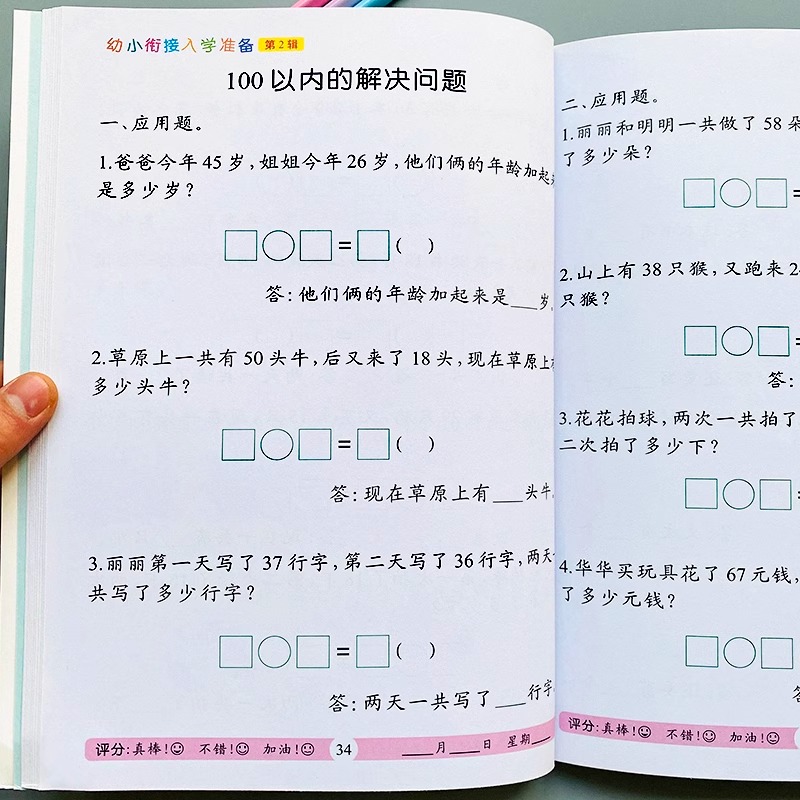 幼小衔接入学准备 第2辑
100以内的解决问题
一、应用题。
1.爸爸今年45岁,姐姐今年26岁,他们俩的年龄加起来
是多少岁?
□○□=□( )
答:他们俩的年龄加起来是___岁。
2.草原上一共有50头牛,后又来了18头,现在草原上
多少头牛?
□○□=□( )
答:现在草原上有___头牛。
3.丽丽第一天写了37行字,第二天写了36行字,两天一
共写了多少行字?
□○□=□( )
答:两天一共写了___行字
评分:真棒! 不错! 加油! 34 ___月___日 星期___
二、应用题。
1.丽丽和明明一共做了58朵
了多少朵?
□○□=
2.山上有38只猴,又跑来2
只猴?
□○□=
答:
3.花花拍球,两次一共拍了
二次拍了多少下?
□○□=
4.华华买玩具花了67元钱,
了多少元钱?
□○□=
评分:真棒! 不错! 加油!